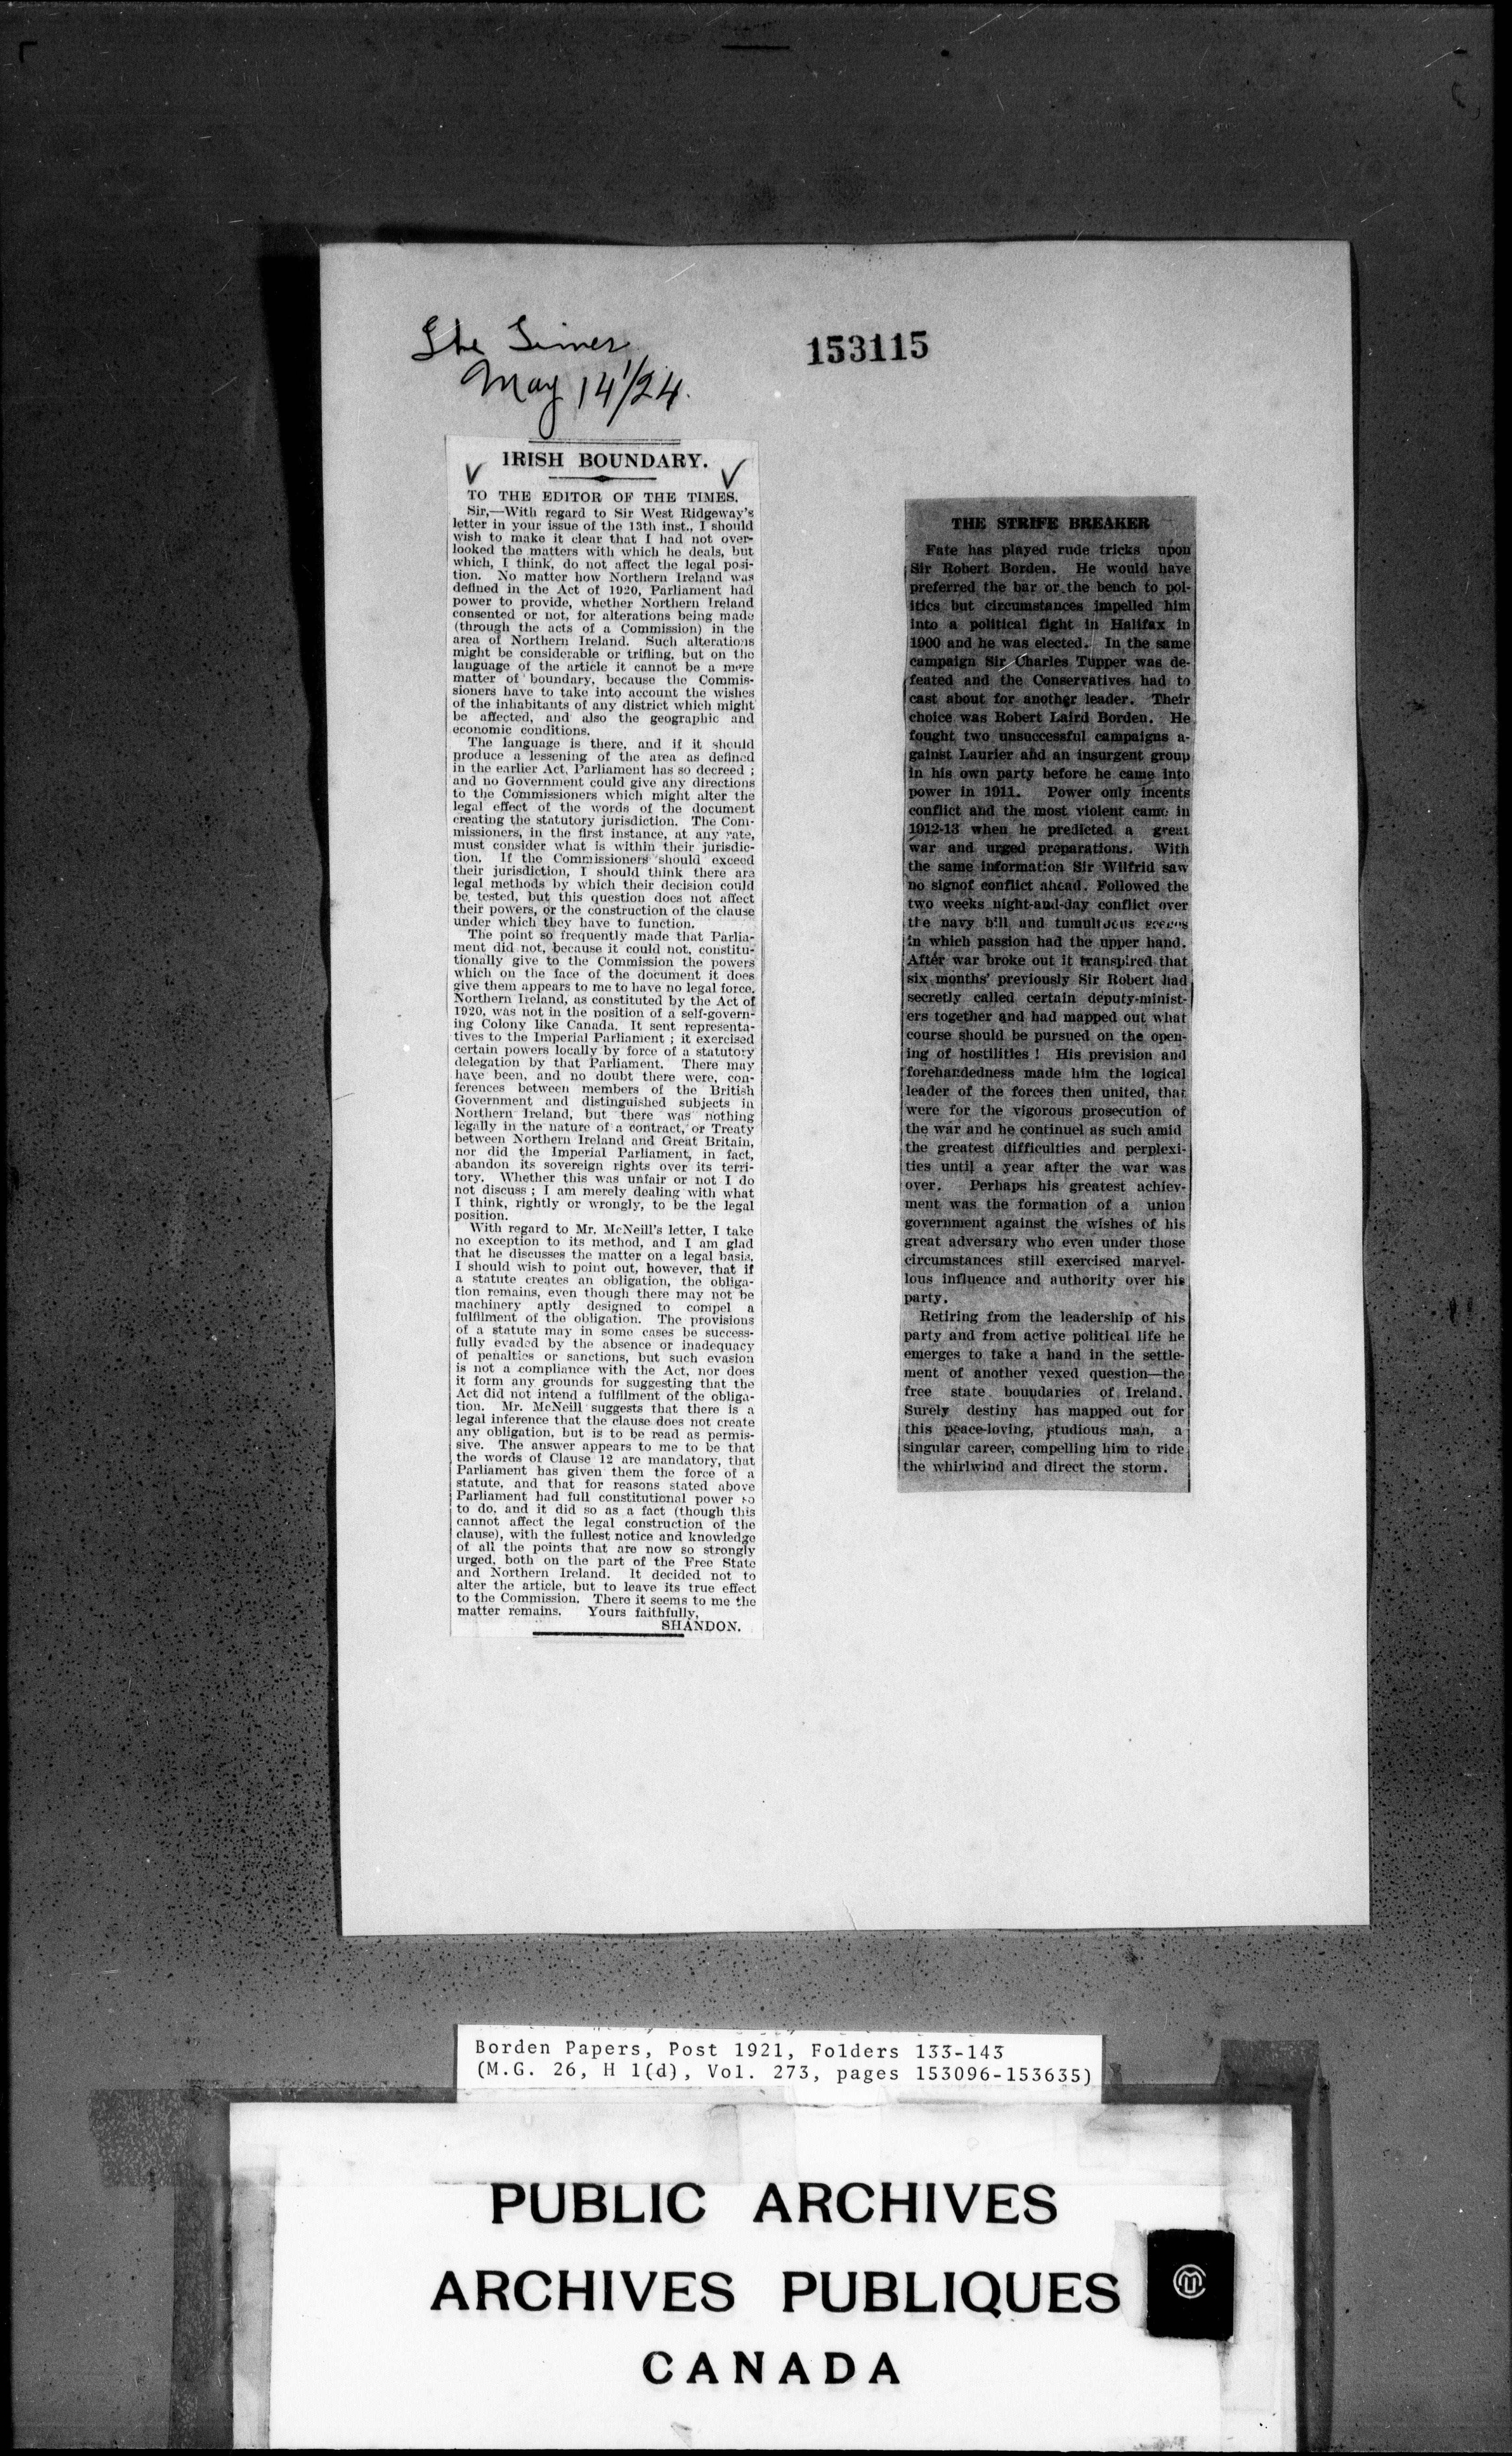 The Times
May 14/24.
153115
IRISH BOUNDARY.
TO THE EDITOR OF THE TIMES.
Sir,—With regard to Sir West Ridgeway's
letter in your issue of the 13th inst., I should
wish to make it clear that I had not over-
looked the matters with which he deals, but
which, I think, do not affect the legal posi-
tion. No matter how Northern Ireland was
defined in the Act of 1920, Parliament had
power to provide, whether Northern Ireland
consented or not, for alterations being made
(through the acts of a Commission) in the
area of Northern Ireland. Such alterations
might be considerable or trifling, but on the
language of the article it cannot be a mere
matter of boundary, because the Commis-
sioners have to take into account the wishes
of the inhabitants of any district which might
be affected, and also the geographic and
economic conditions.
The language is there, and if it should
produce a lessening of the area as defined
in the earlier Act, Parliament has so decreed ;
and no Government could give any directions
to the Commissioners which might alter the
legal effect of the words of the document
creating the statutory jurisdiction. The Com-
missioners, in the first instance, at any rate,
must consider what is within their jurisdic-
tion. If the Commissioners should exceed
their jurisdiction, I should think there are
legal methods by which their decision could
be tested, but this question does not affect
their powers, or the construction of the clause
under which they have to function.
The point so frequently made that Parlia-
ment did not, because it could not, constitu-
tionally give to the Commission the powers
which on the face of the document it does
give them appears to me to have no legal force.
Northern Ireland, as constituted by the Act of
1920, was not in the position of a self-govern-
ing Colony like Canada. It sent representa-
tives to the Imperial Parliament ; it exercised
certain powers locally by force of a statutory
delegation by that Parliament. There may
have been, and no doubt there were, con-
ferences between members of the British
Government and distinguished subjects in
Northern Ireland, but there was nothing
legally in the nature of a contract, or Treaty
between Northern Ireland and Great Britain,
nor did the Imperial Parliament, in fact,
abandon its sovereign rights over its terri-
tory. Whether this was unfair or not I do
not discuss ; I am merely dealing with what
I think, rightly or wrongly, to be the legal
position.
With regard to Mr. McNeill's letter, I take
no exception to its method, and I am glad
that he discusses the matter on a legal basis.
I should wish to point out, however, that if
a statute creates an obligation, the obliga-
tion remains, even though there may not be
machinery aptly designed to compel a
fulfilment of the obligation. The provisions
of a statute may in some cases be success-
fully evaded by the absence or inadequacy
of penalties or sanctions, but such evasion
is not a compliance with the Act, nor does
it form any grounds for suggesting that the
Act did not intend a fulfilment of the obliga-
tion. Mr. McNeill suggests that there is a
legal inference that the clause does not create
any obligation, but is to be read as permis-
sive. The answer appears to me to be that
the words of Clause 12 are mandatory, that
Parliament has given them the force of a
statute, and that for reasons stated above
Parliament had full constitutional power so
to do, and it did so as a fact (though this
cannot affect the legal construction of the
clause), with the fullest notice and knowledge
of all the points that are now so strongly
urged, both on the part of the Free State
and Northern Ireland. It decided not to
alter the article, but to leave its true effect
to the Commission. There it seems to me the
matter remains. Yours faithfully,
SHANDON.
THE STRIFE BREAKER
Fate has played rude tricks upon
Sir Robert Borden. He would have
preferred the bar or the bench to pol-
itics but circumstances impelled him
into a political fight in Halifax in
1900 and he was elected. In the same
campaign Sir Charles Tupper was de-
feated and the Conservatives had to
cast about for another leader. Their
choice was Robert Laird Borden. He
fought two unsuccessful campaigns a-
gainst Laurier and an insurgent group
in his own party before he came into
power in 1911. Power only incents
conflict and the most violent came in
1912-13 when he predicted a great
war and urged preparations. With
the same information Sir Wilfrid saw
no signof conflict ahead. Followed the
two weeks night-and-day conflict over
the navy bill and tumultuous scenes
in which passion had the upper hand.
After war broke out it transpired that
six months' previously Sir Robert had
secretly called certain deputy-minist-
ers together and had mapped out what
course should be pursued on the open-
ing of hostilities ! His prevision and
forehandedness made him the logical
leader of the forces then united, that
were for the vigorous prosecution of
the war and he continuel as such amid
the greatest difficulties and perplexi-
ties until a year after the war was
over. Perhaps his greatest achiev-
ment was the formation of a union
government against the wishes of his
great adversary who even under those
circumstances still exercised marvel-
lous influence and authority over his
party.
Retiring from the leadership of his
party and from active political life he
emerges to take a hand in the settle-
ment of another vexed question—the
free state boundaries of Ireland.
Surely destiny has mapped out for
this peace-loving, studious man, a
singular career, compelling him to ride
the whirlwind and direct the storm.
Borden Papers, Post 1921, Folders 133-143
(M.G. 26, H 1(d), Vol. 273, pages 153096-153635)
PUBLIC ARCHIVES
ARCHIVES PUBLIQUES
CANADA